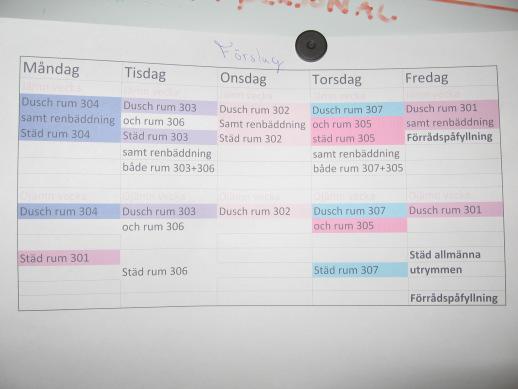 PERSONAL
Förslag
Måndag Tisdag Onsdag Torsdag Fredag
Jämn vecka Jämn vecka Jämn vecka Jämn vecka Jämn vecka
Dusch rum 304 Dusch rum 303 Dusch rum 302 Dusch rum 307 Dusch rum 301
samt renbäddning och rum 306 Samt renbäddning och rum 305 samt renbäddning
Städ rum 304 Städ rum 303 Städ rum 302 städ rum 305 Förrådspåfyllning
samt renbäddning samt renbäddning
både rum 303+306 både rum 307+305
Ojämn vecka Ojämn vecka Ojämn vecka Ojämn vecka Ojämn vecka
Dusch rum 304 Dusch rum 303 Dusch rum 302 Dusch rum 307 Dusch rum 301
och rum 306 och rum 305
Städ rum 301 Städ allmänna
Städ rum 306 Städ rum 307 utrymmen
Förrådspåfyllning